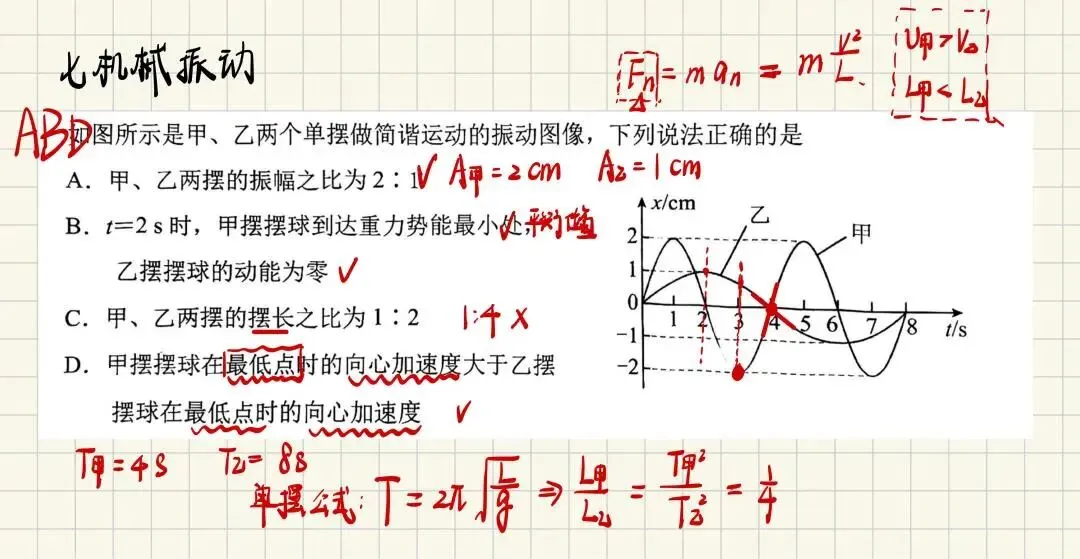 七机械振动
Fn = m an = m V²/L
V甲>V乙
L甲<L乙
ABD
如图所示是甲、乙两个单摆做简谐运动的振动图像，下列说法正确的是
A. 甲、乙两摆的振幅之比为 2：1 ✓ A甲=2cm A乙=1cm
B. t=2 s 时，甲摆摆球到达重力势能最小处， ✓ 平衡位置
乙摆摆球的动能为零 ✓
C. 甲、乙两摆的摆长之比为 1：2 1:4 ×
D. 甲摆摆球在最低点时的向心加速度大于乙摆
摆球在最低点时的向心加速度 ✓
x/cm
乙
甲
2
1
0
1 2 3 4 5 6 7 8
t/s
-1
-2
T甲=4s T乙=8s
单摆公式: T=2π√(L/g) ⇒ L甲/L乙 = T甲²/T乙² = 1/4